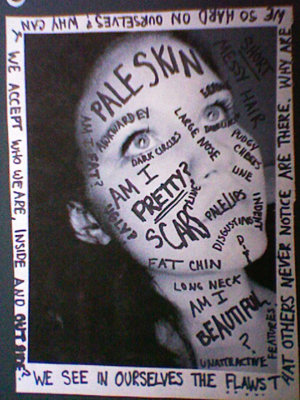 WE SO HARD ON OURSELVES? WHY CAN
WE ACCEPT WHO WE ARE, INSIDE AND OUTSIDE?
WE SEE IN OURSELVES THE FLAWS
THAT OTHERS NEVER NOTICE ARE THERE, WHY ARE
PALE SKIN
SHORT
MESSY HAIR
AWKWARD
AM I FAT?
LARGE NOSE
PUDGY
CHEEKS
DARK CIRCLES
AM I
PRETTY?
UGLY?
SCARS
PALE LIPS
DISGUSTING
FAT CHIN
LONG NECK
AM I
BEAUTIFUL
?
UNATTRACTIVE
FEATURES